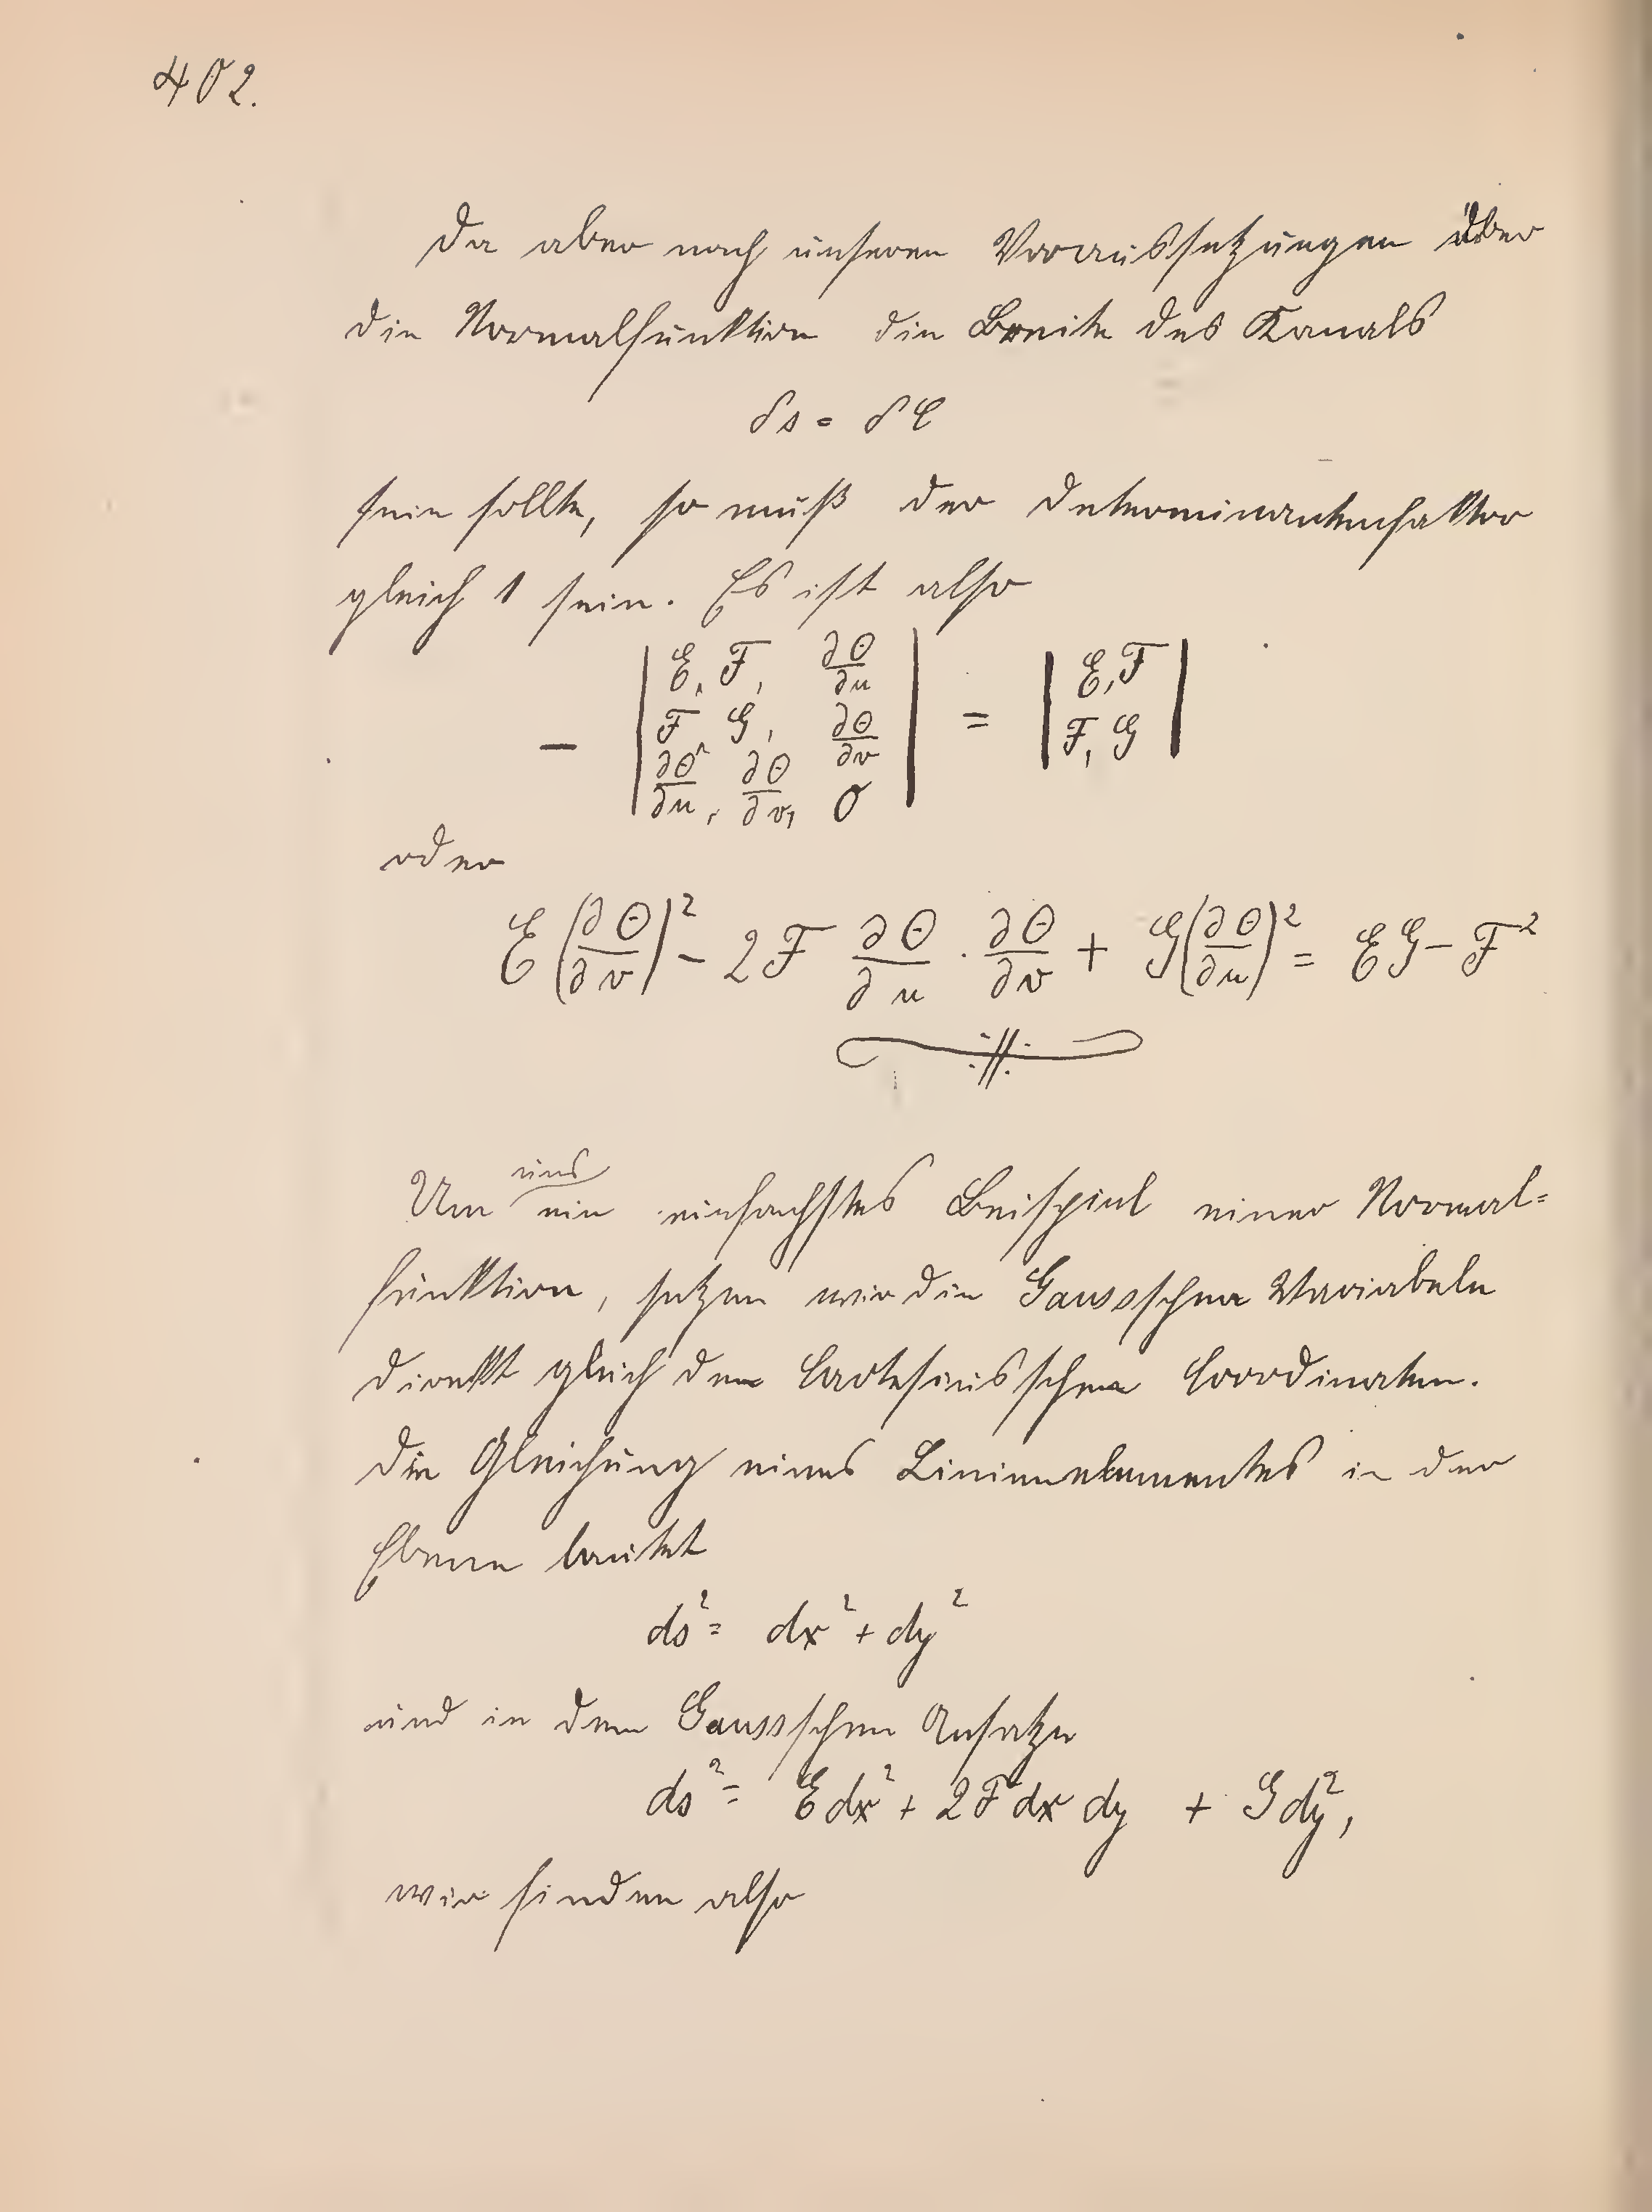 402.
Da aber nach unseren Voraussetzungen über
die Normalfunktion die Breite des Kanals
δs = δϑ
sein sollte, so muß der Determinantenfaktor
gleich 1 sein. Es ist also
− | E, F, ∂Θ/∂u ; F, G, ∂Θ/∂v ; ∂Θ/∂u, ∂Θ/∂v, 0 | = | E, F ; F, G |
oder
E (∂Θ/∂v)² − 2F ∂Θ/∂u · ∂Θ/∂v + G (∂Θ/∂u)² = EG − F²
Um uns ein einfachstes Beispiel einer Normal=
funktion, setzen wir die Gaussschen Variabeln
direkt gleich den Cartesiusschen Coordinaten.
Die Gleichung eines Linienelementes in der
Ebene lautet
ds² = dx² + dy²
und in dem Gaussschen Ansatze
ds² = E dx² + 2F dx dy + G dy²,
wir finden also